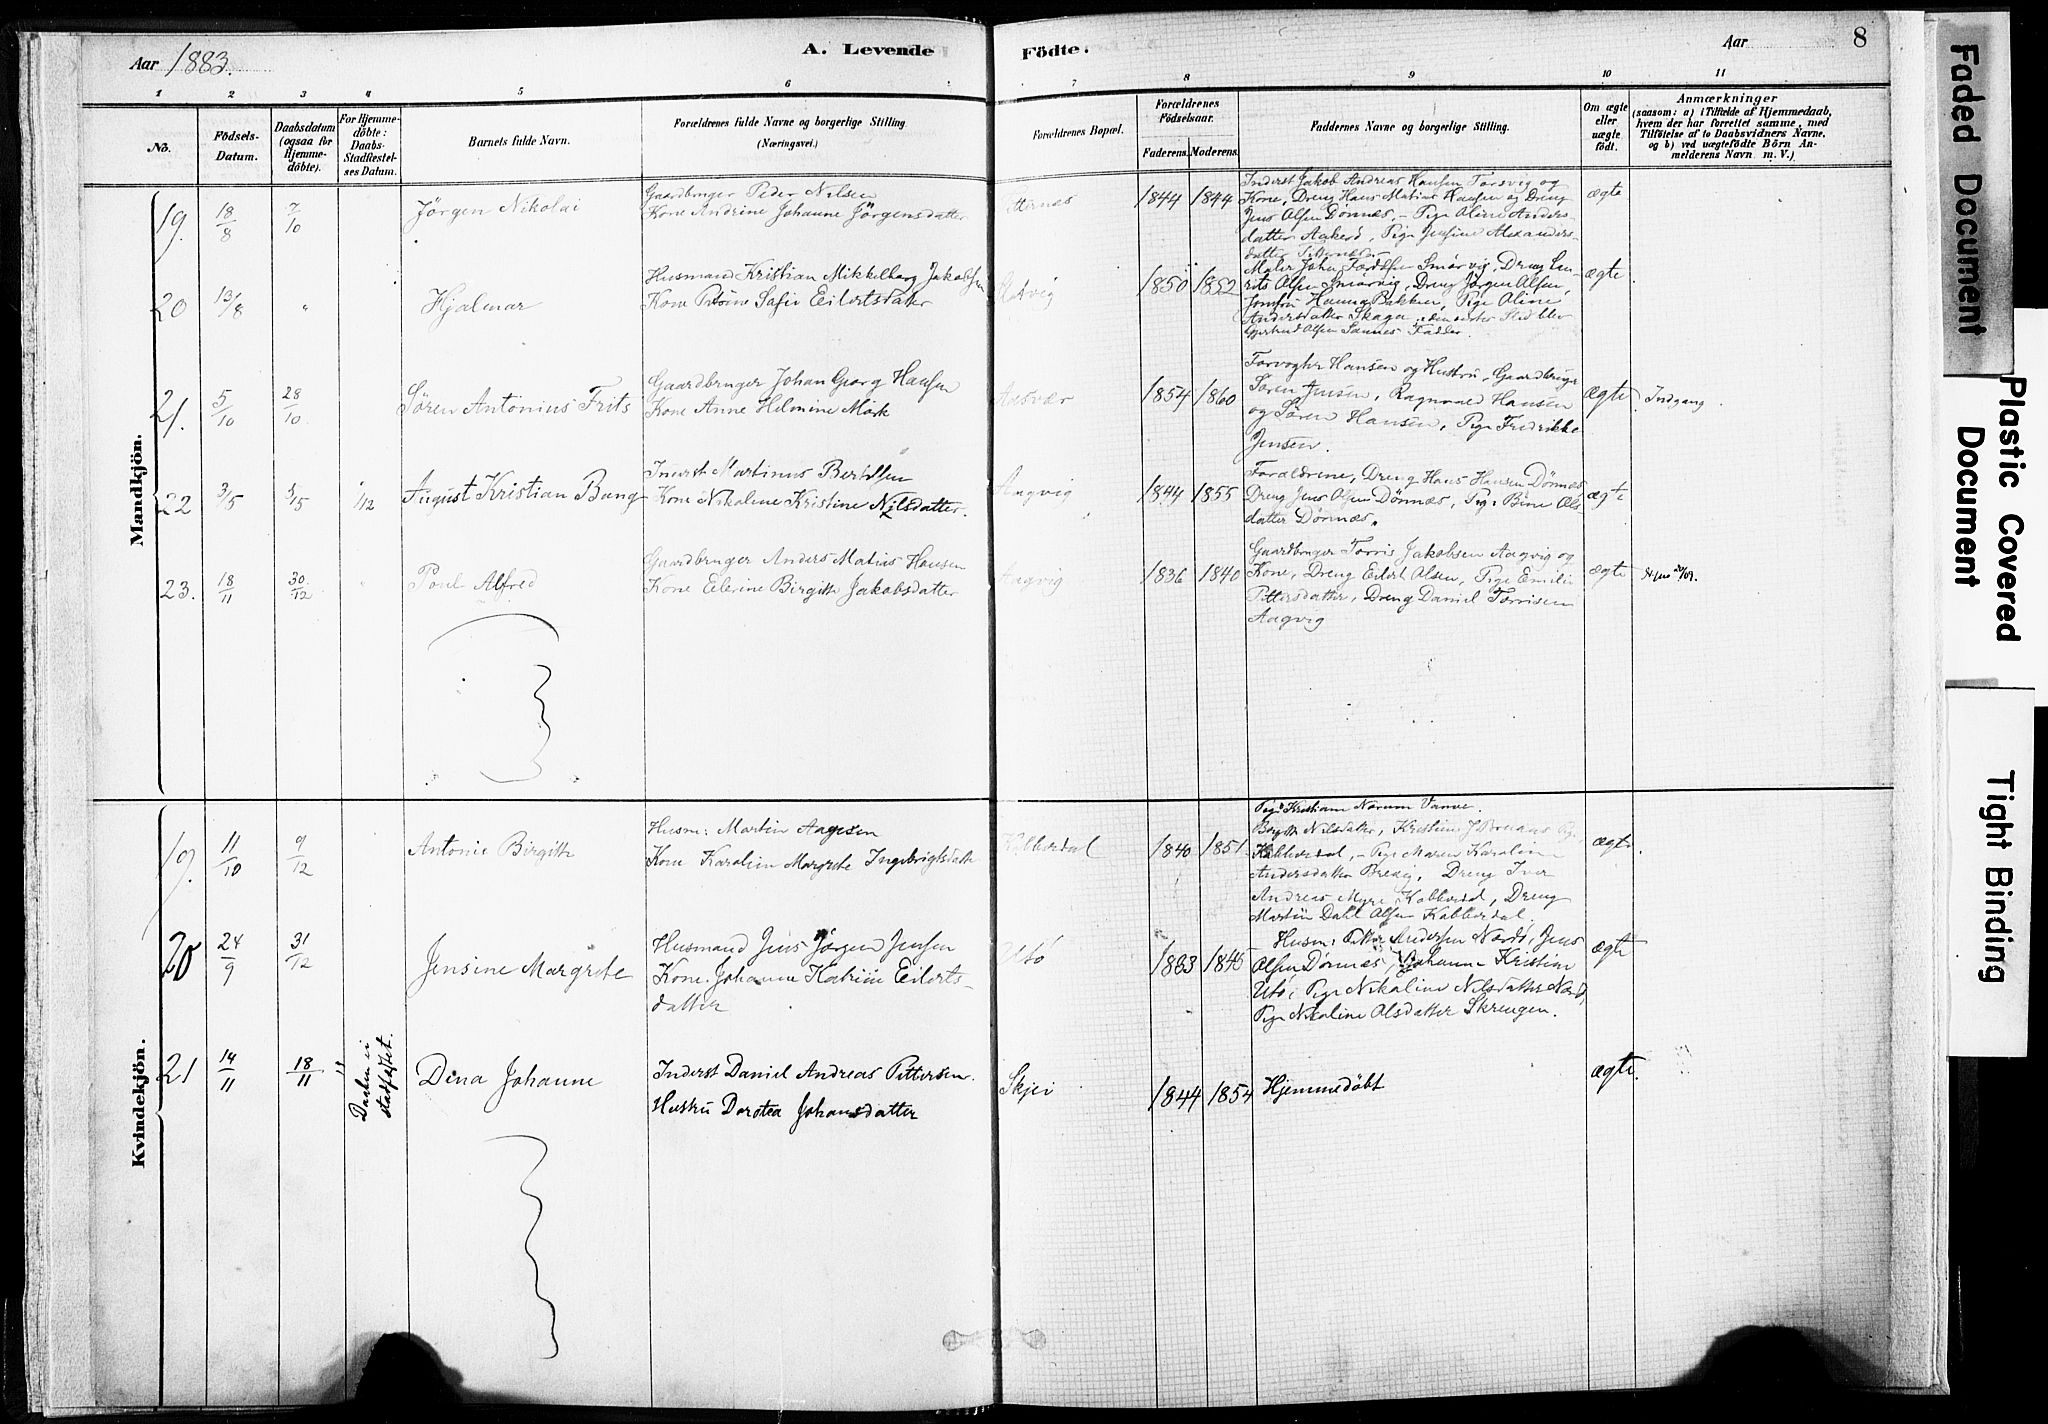 Aar 1883.
A. Levende Födte.
Aar
8
1 2 3 4 5 6 7 8 9 10 11
No.
Födsels-
Datum.
Daabsdatum
(ogsaa for
Hjemme-
döbte).
For Hjemme-
döbte:
Daabs-
Stadfæstel-
ses Datum.
Barnets fulde Navn.
Forældrenes fulde Navne og borgerlige Stilling
(Næringsvei.)
Forældrenes Bopæl.
Forældrenes
Födselsaar.
Faderens. Moderens.
Faddernes Navne og borgerlige Stilling.
Om ægte
eller
uægte
födt.
Anmærkninger
(saasom: a) i Tilfælde af Hjemmedaab,
hvem der har forrettet samme, med
Tilföielse af to Daabsvidners Navne,
og b) ved uægtefödte Börn An-
melderens Navn m. V.)
Mandkjön.
19. 18/8 7/10
Jörgen Nikolai
Gaardbruger Peder Nilsen
Kone Andrine Johanne Jörgensdatter
1844 1844
Inderst Jakob Andreas Hansen Torsvig og
Kone, Dreng Hans Matias Hansen og Dreng
Jens Olsen Dönnæs, - Pige Oline Anders-
datter Aakerö, Pige Jensine Alexanders-
datter
ægte
20 13/8 "
Hjalmar
Husmand Kristian Mikkelborg Jakobsen
Kone Petrine Sofie Eilertsdatter
1850 1852
Smörvig, Dreng
Olsen Smörvig, Dreng Jörgen Olsen,
Jomfru Hanna Bakken, Pige Oline
Andersdatter Skaga
Olsen Sannes Fadder.
ægte
21. 5/10 28/10
Sören Antonius Frits
Gaardbruger Johan Georg Hansen
Kone Anne Helmine Mörk
Aasvær
1854 1860
Hansen og Hustru, Gaardbruger
Sören Jensen, Ragnvald Hansen
og Sören Hansen, Pige Fredrikke
Jensen.
ægte
Indgang
22 3/5 5/15 1/12
August Kristian Bang
Inderst Martinus Bertelsen
Kone Nikoline Kristine Nilsdatter.
Aagvig
1844 1855
Forældrene, Dreng Hans Hansen Dönnæs
Dreng Jens Olsen Dönnæs, Pige Bine Ols-
datter Dönnæs.
ægte
23. 18/11 30/12 "
Poul Alfred
Gaardbruger Anders Matias Hansen
Kone Elerine Birgitte Jakobsdatter
Aagvig
1836 1840
Gaardbruger Torris Jakobsen Aagvig og
Kone, Dreng Eilert Olsen, Pige Emilie
Pettersdatter, Dreng Daniel Torrisen
Aagvig
ægte
Kvindekjön.
19. 11/10 9/12
Antonie Birgitte
Husm: Martin Aagesen
Kone Karoline Margrete Ingebrigtsdatter
1840 1851
Nilsdatter, Kristine
Pige Maren Karoline
Andersdatter Breivig, Dreng Iver
Andreas Myre Kobberdal, Dreng
Martin Dahl Olsen Kobberdal.
ægte.
20 24/9 31/12
Jensine Margrete
Husmand Jens Jörgen Jensen
Kone Johanne Katrine Eilerts-
datter
Utö
1833 1845
Husm: Petter Andersen Nordö, Jens
Olsen Dönnæs, Johanne Kristine
Utö, Pige Nikoline Nilsdatter Nordö,
Pige Nikoline Olsdatter Skrengen.
ægte
21 14/11 18/11 "
Daaben ei
stadfæstet.
Dina Johanne
Inderst Daniel Andreas Pettersen.
Hustru Dorotea Johansdatter
Skjei
1844 1854
Hjemmedöbt
ægte.
Faded Document
Plastic Covered
Document
Tight Binding